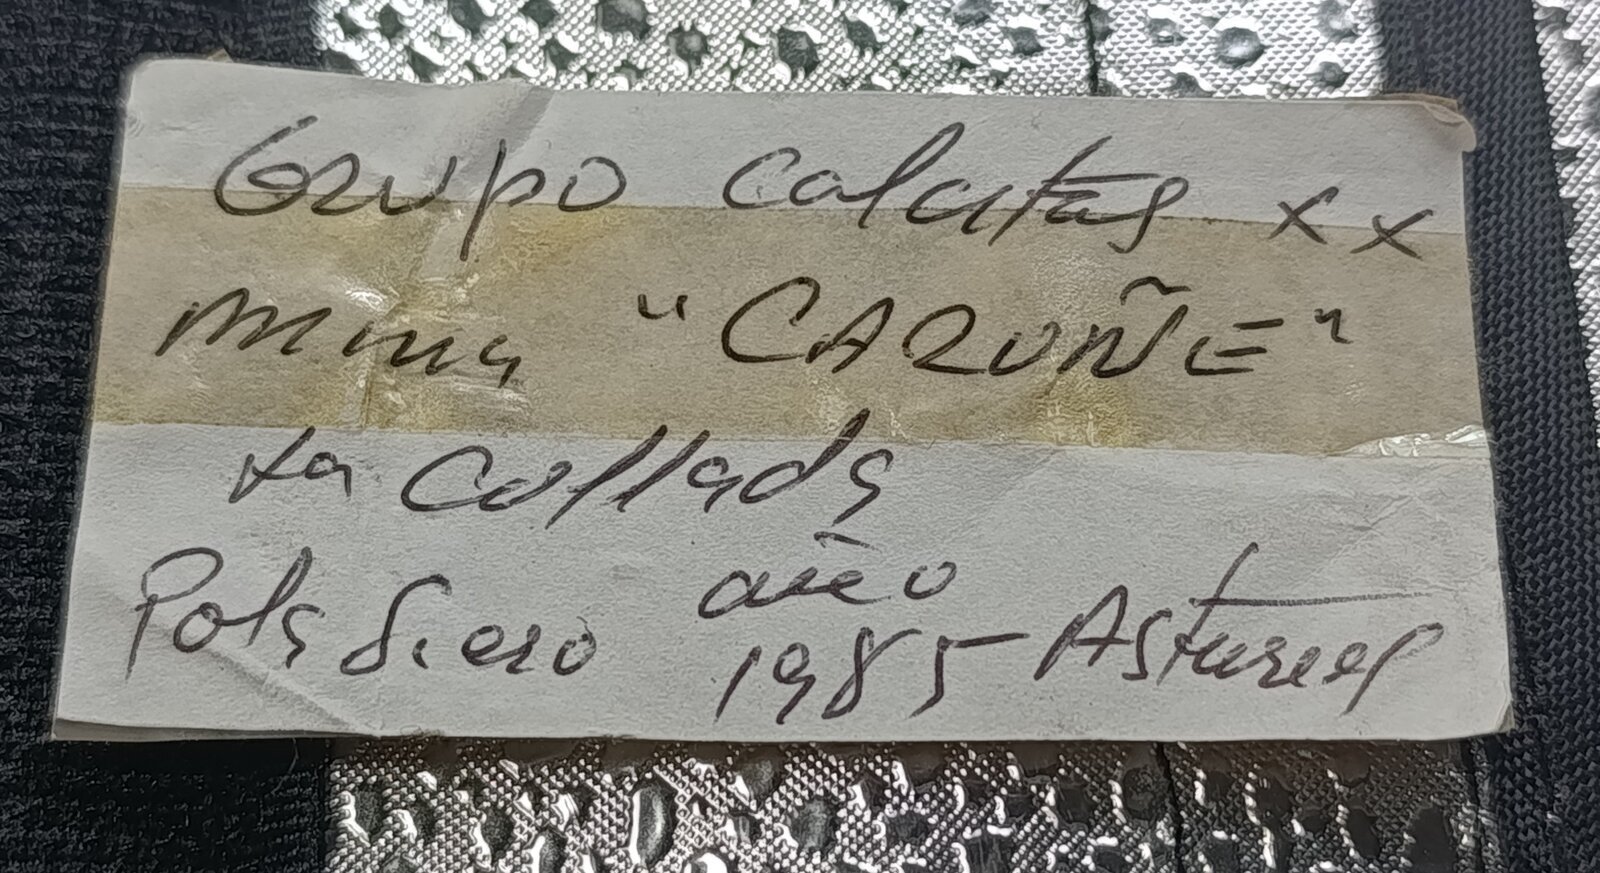 Grupo calcitas x x
mina "CARUÑE"
La Collada
Pola Siero año 1985 Asturias